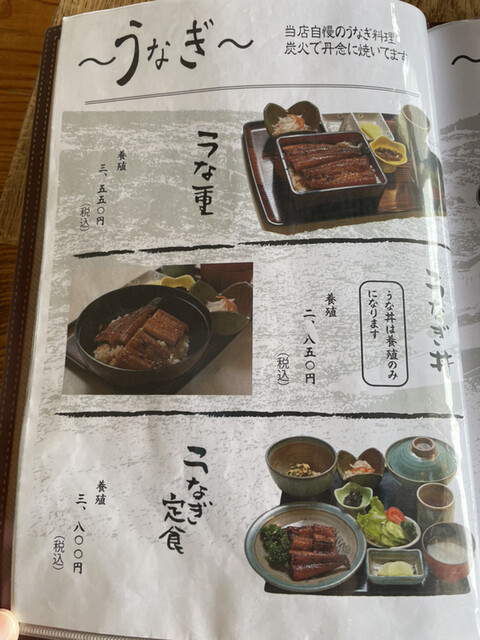 ～うなぎ～
当店自慢のうなぎ料理
炭火で丹念に焼いてます
うな重
養殖
三、五五〇円
（税込）
うなぎ丼
うな丼は養殖のみ
になります
養殖
二、八五〇円
（税込）
うなぎ定食
養殖
三、八〇〇円
（税込）